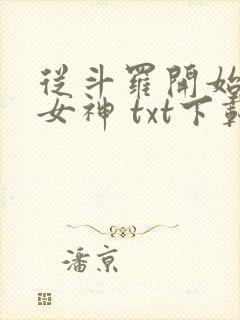 從斗羅開始
女神 txt下載
潘京